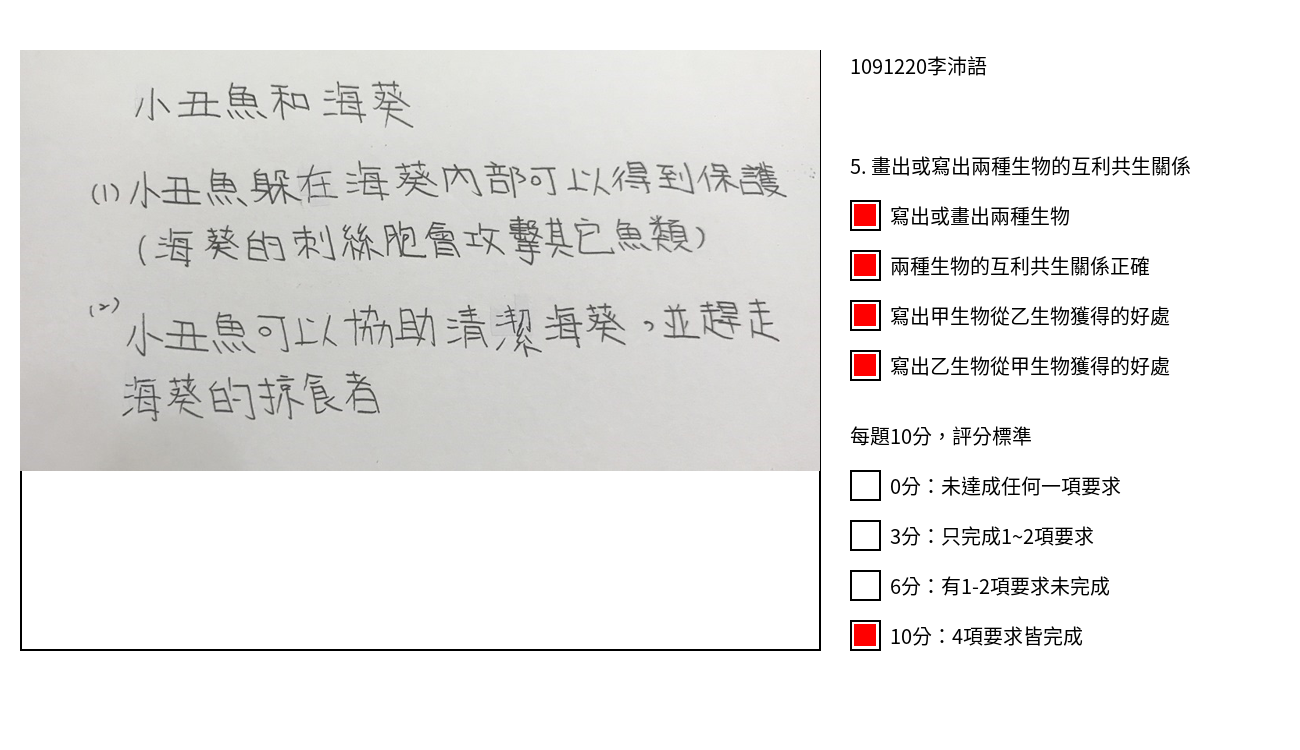 小丑魚和海葵
(1)小丑魚躲在海葵內部可以得到保護
(海葵的刺絲胞會攻擊其它魚類)
(2)
小丑魚可以協助清潔海葵,並趕走
海葵的掠食者
1091220李沛語
5. 畫出或寫出兩種生物的互利共生關係
寫出或畫出兩種生物
兩種生物的互利共生關係正確
寫出甲生物從乙生物獲得的好處
寫出乙生物從甲生物獲得的好處
每題10分，評分標準
0分：未達成任何一項要求
3分：只完成1~2項要求
6分：有1-2項要求未完成
10分：4項要求皆完成